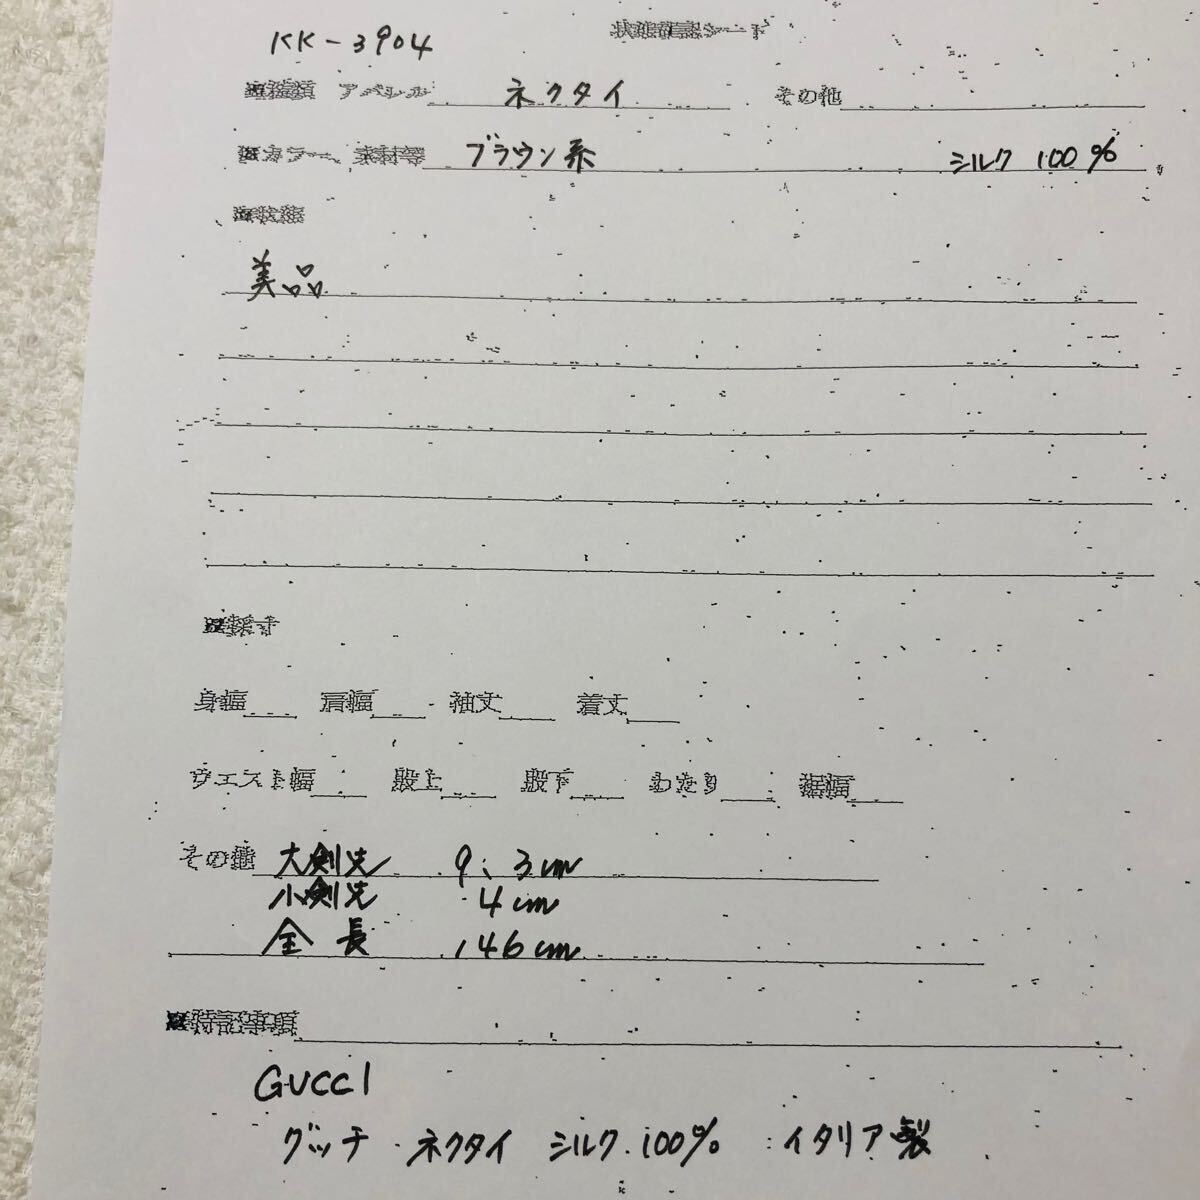 KK-3904
状態確認シート
■種類 アパレル ネクタイ その他
■カラー、素材等 ブラウン系 シルク 100%
■状態
美品
■採寸
身幅 肩幅 袖丈 着丈
ウエスト幅 股上 股下 わたり 裾幅
その他 大剣先 9.3cm
小剣先 4cm
全長 146cm
■特記事項
GUCCI
グッチ ネクタイ シルク100% イタリア製